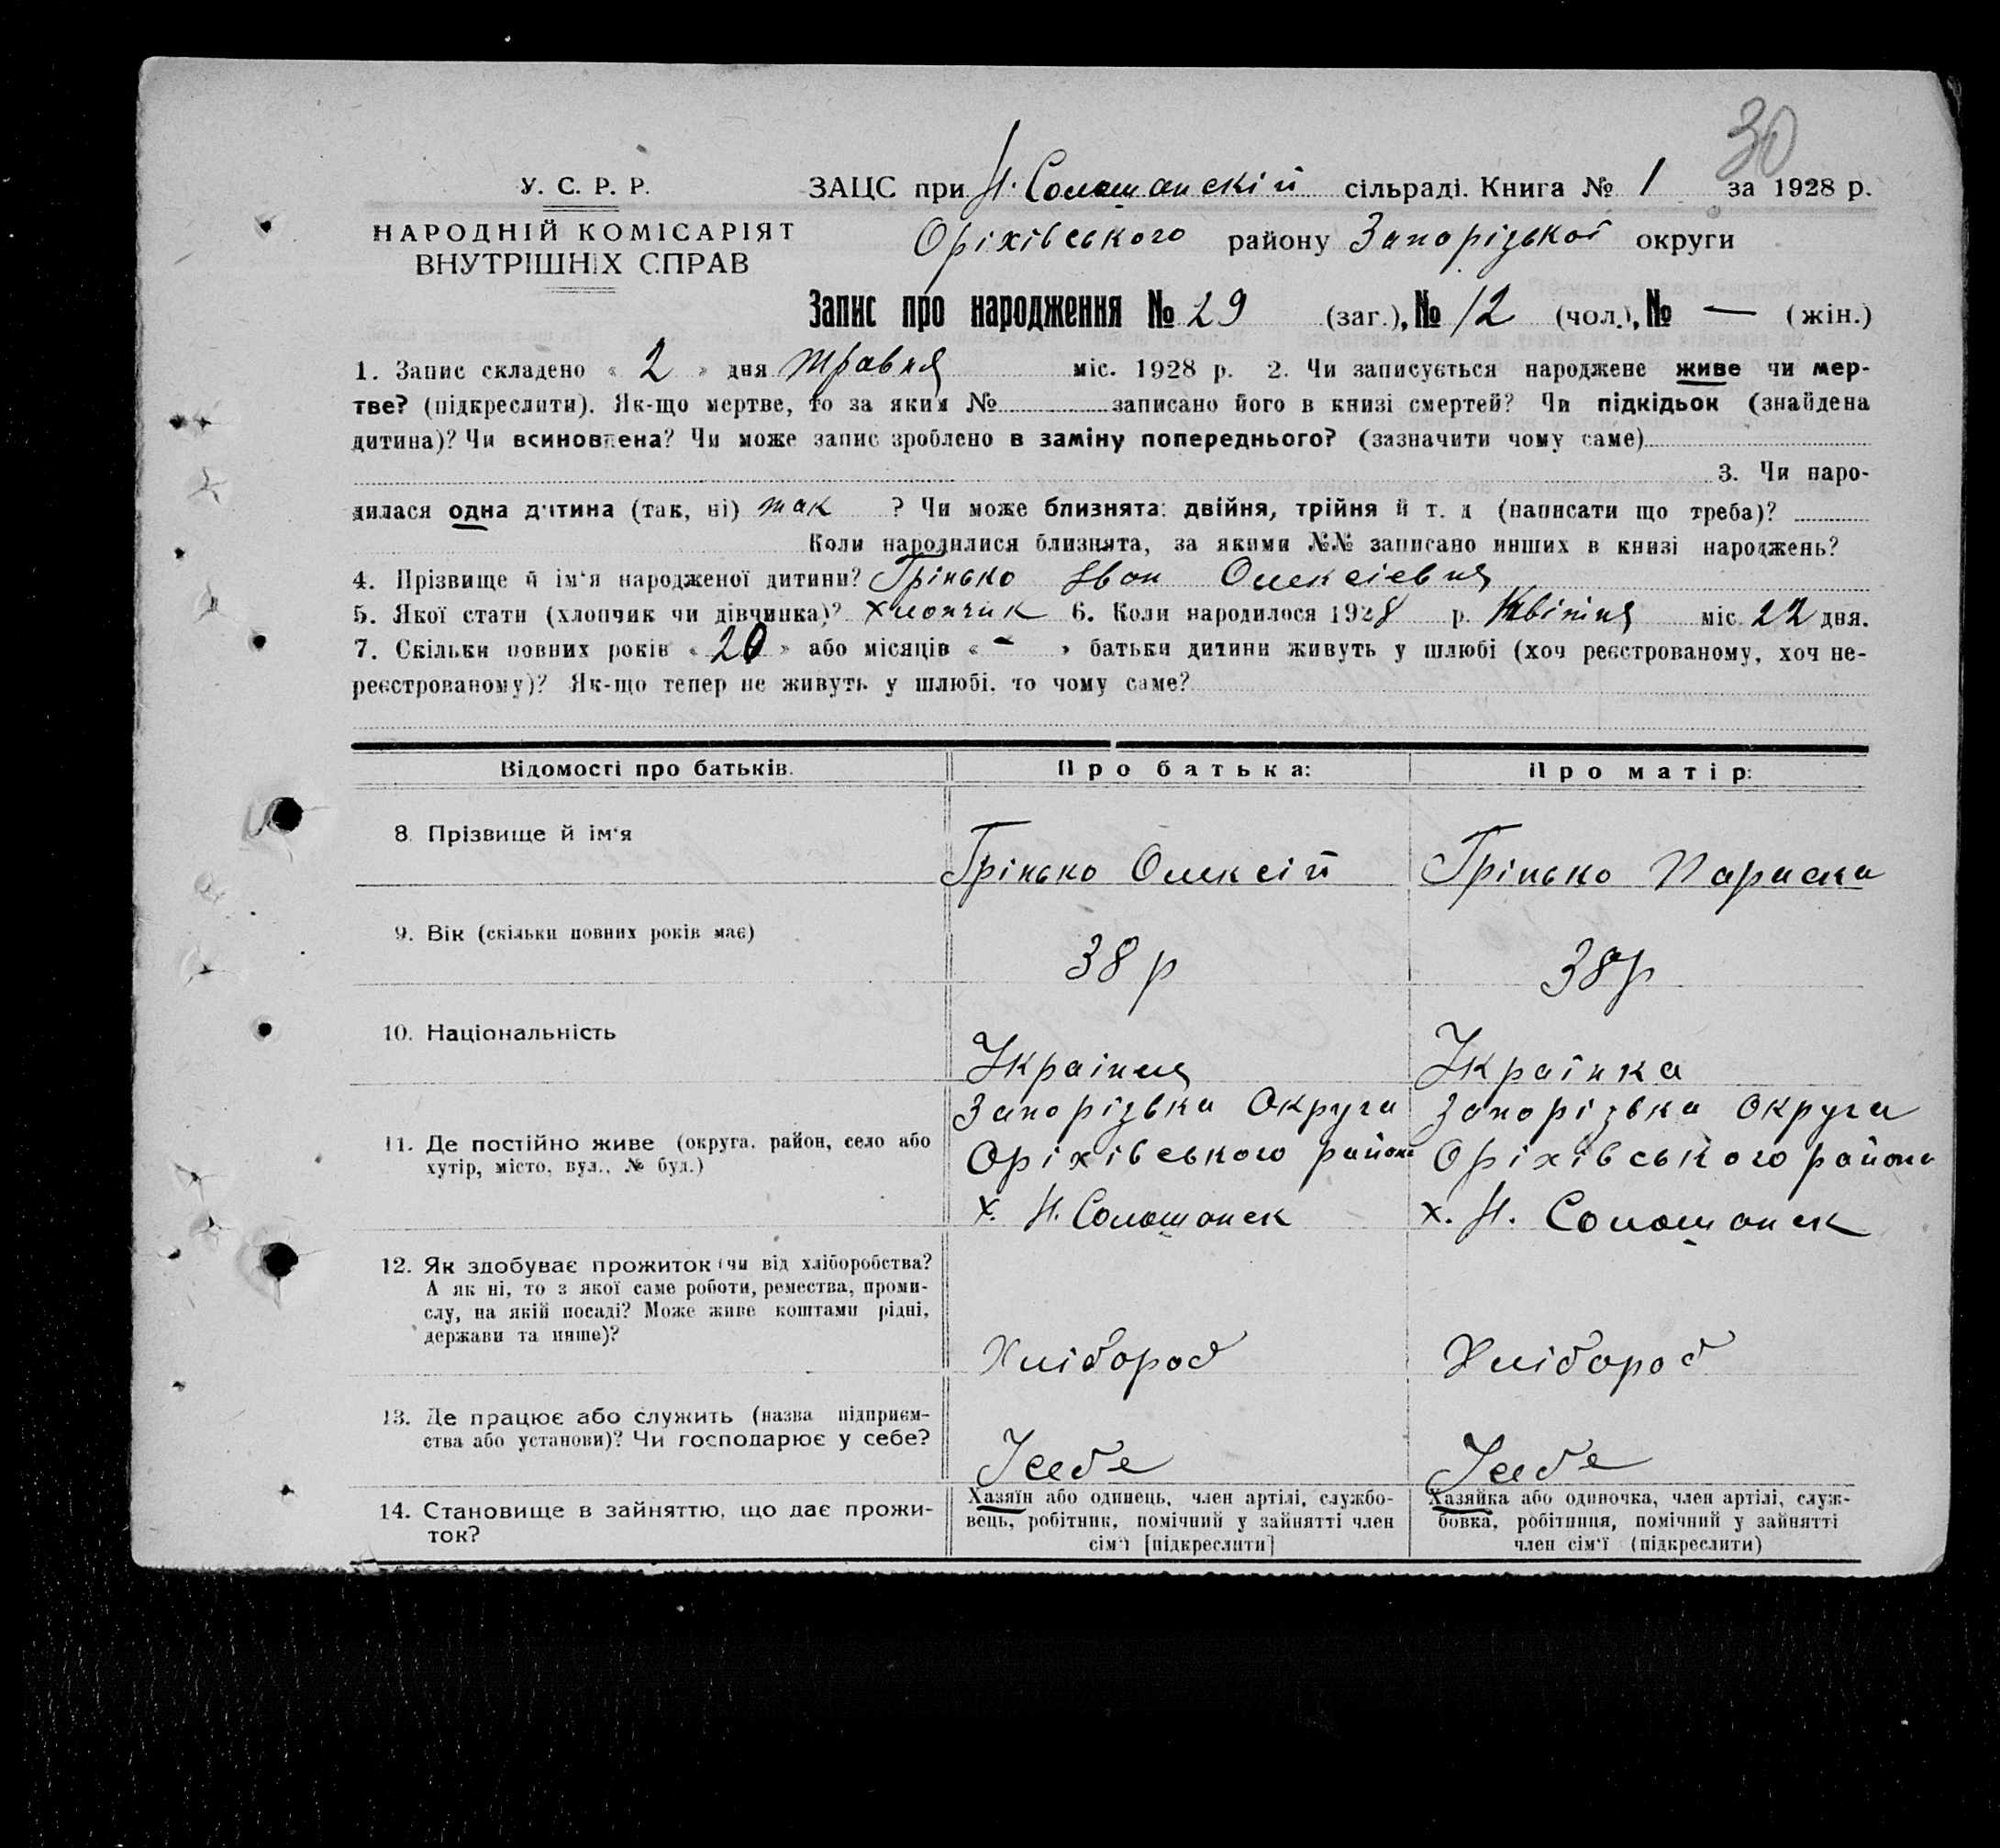 30
У. С. Р. Р.
НАРОДНІЙ КОМІСАРІЯТ
ВНУТРІШНІХ СПРАВ
ЗАЦС при Н. Солошанскій сільраді. Книга № 1 за 1928 р.
Оріхівського району Запорізької округи
Запис про народження № 29 (заг.), № 12 (чол.), № — (жін.)
1. Запис складено « 2 » дня травня міс. 1928 р. 2. Чи записується народжене живе чи мер-
тве? (підкреслити). Як-що мертве, то за яким № записано його в книзі смертей? Чи підкідьок (знайдена
дитина)? Чи всиновлена? Чи може запис зроблено в заміну попереднього? (зазначити чому саме)
3. Чи наро-
дилася одна дитина (так, ні) так ? Чи може близнята: двійня, трійня й т. д (написати що треба)?
Коли народилися близнята, за якими №№ записано инших в книзі народжень?
4. Прізвище й ім'я народженої дитини? Грінько Іван Олексієвня
5. Якої стати (хлопчик чи дівчинка)? хлопчик 6. Коли народилося 1928 р. Квітня міс. 22 дня.
7. Скільки повних років « 20 » або місяців « - » батьки дитини живуть у шлюбі (хоч реєстрованому, хоч не-
реєстрованому)? Як-що тепер не живуть у шлюбі, то чому саме?
Відомості про батьків. Про батька: Про матір:
8. Прізвище й ім'я Грінько Олексій Грінько Параска
9. Вік (скільки повних років має) 38 р 38 р
10. Національність Украінця Українка
11. Де постійно живе (округа, район, село або
хутір, місто, вул., № буд.)
Запорізька Округа
Оріхівського району
х. Н. Солошанск
Запорізька Округа
Оріхівського району
х. Н. Солошанск
12. Як здобуває прожиток (чи від хліборобства?
А як ні, то з якої саме роботи, ремества, проми-
слу, на якій посаді? Може живе коштами рідні,
держави та инше)?
Хлібороб Хлібороб
13. Де працює або служить (назва підприєм-
ства або установи)? Чи господарює у себе?
Усебе Усебе
14. Становище в зайняттю, що дає прожи-
ток?
Хазяїн або одинець, член артілі, службо-
вець, робітник, помічний у зайнятті член
сім'ї [підкреслити]
Хазяйка або одиночка, член артілі, служ-
бовка, робітниця, помічний у зайнятті
член сім'ї (підкреслити)